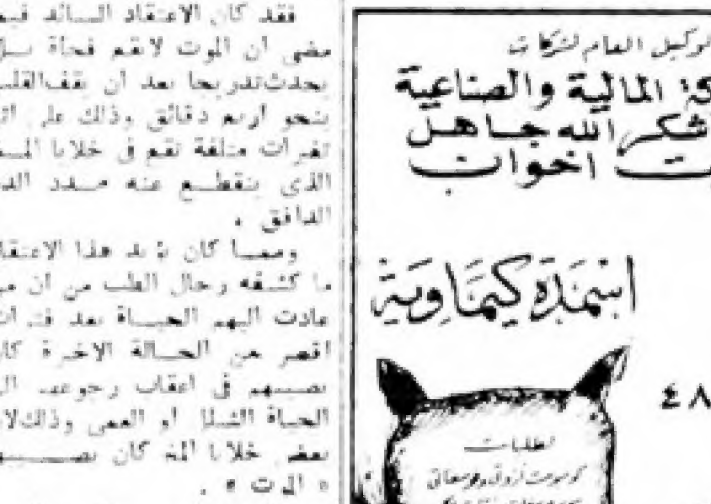 فقد كان الاعتقاد السائد فيم
مضى ان الموت لا يقع فجأة بل
يحدث تدريجا بعد ان يقف القلب
بنحو اربع دقائق وذلك على اثر
تغيرات متلفة تقع في خلايا المخ
الذى ينقطع عنه مدد الد
الدافق .
ومما كان يؤيد هذا الاعتقا
ما كشفه رجال الطب من ان
عادت اليهم الحياة بعد فترات
اقصر من الحالة الاخيرة كا
يصيبهم في اعقاب رجوعهم الى
الحياة الشلل او العمى وذلك لا
بعض خلايا المخ كان يصيبه
« الموت » .
لوكيل العام لشركات
المالية والصناعية
شكر الله جاهل
اخوات
اسمدة كيماوية
٤٨
لطلبات